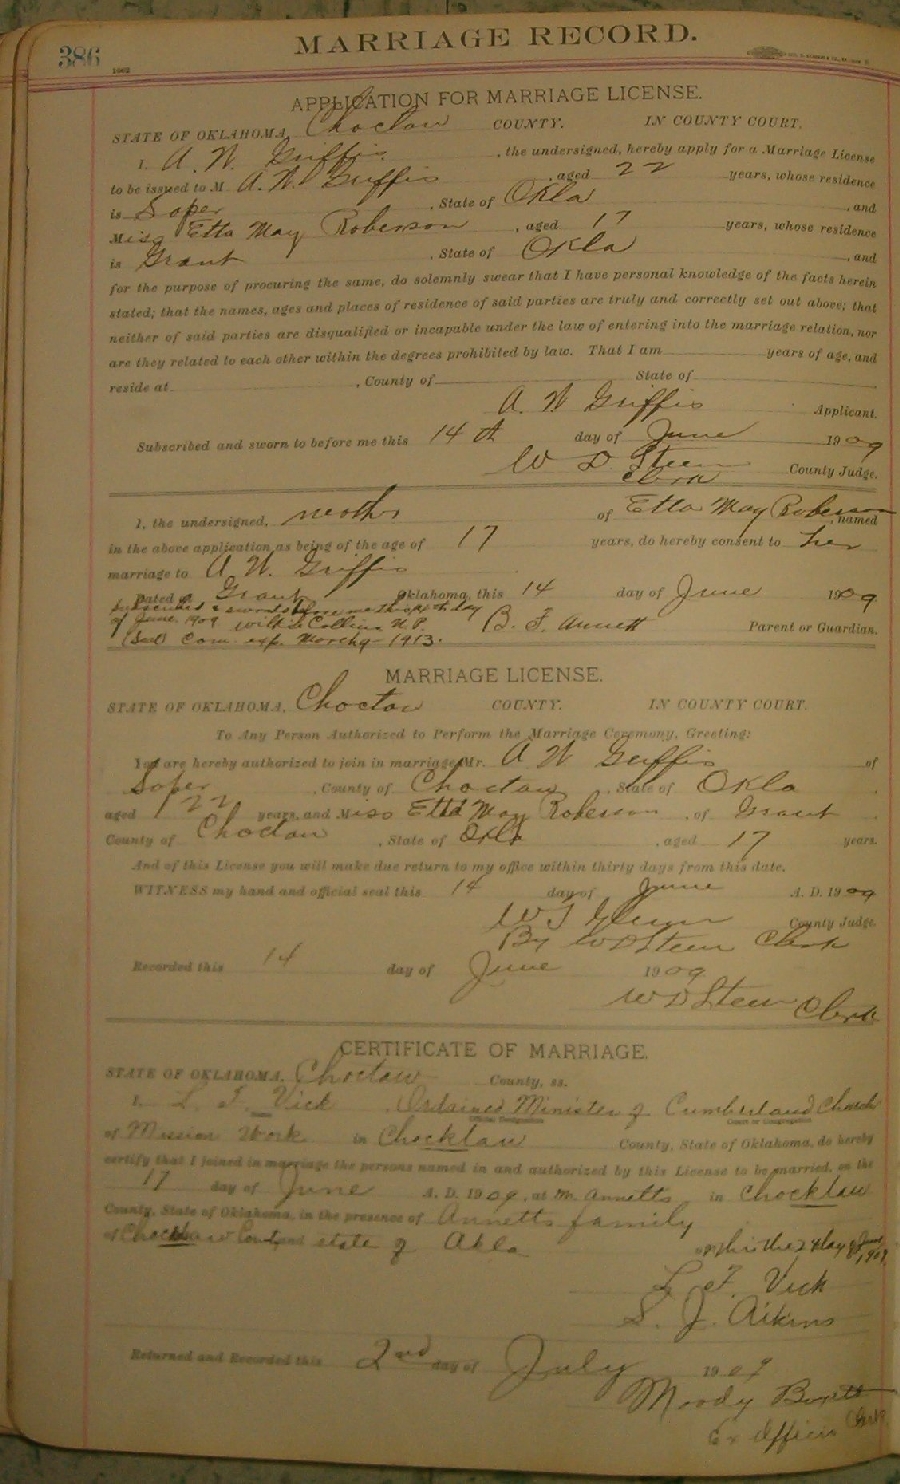 386
1062
MARRIAGE RECORD.
APPLICATION FOR MARRIAGE LICENSE.
STATE OF OKLAHOMA, Choctaw COUNTY. IN COUNTY COURT.
I, A. W. Griffis, the undersigned, hereby apply for a Marriage License
to be issued to M A. W. Griffis, aged 22 years, whose residence
is Soper, State of Okla, and
Miss Etta May Roberson, aged 17 years, whose residence
is Grant, State of Okla, and
for the purpose of procuring the same, do solemnly swear that I have personal knowledge of the facts herein
stated; that the names, ages and places of residence of said parties are truly and correctly set out above; that
neither of said parties are disqualified or incapable under the law of entering into the marriage relation, nor
are they related to each other within the degrees prohibited by law. That I am years of age, and
reside at , County of State of
A. W Griffis Applicant.
Subscribed and sworn to before me this 14th day of June 1909
W D Steen County Judge.
Clerk
I, the undersigned, mother of Etta May Roberson, named
in the above application as being of the age of 17 years, do hereby consent to her
marriage to A. W. Griffis
Dated at Grant Oklahoma, this 14 day of June 1909
subscribed & sworn to before me this 14th day
of June 1909 Collins N.P. B. F. Annett Parent or Guardian.
(Seal) Com. exp. March 9- 1913.
MARRIAGE LICENSE.
STATE OF OKLAHOMA, Choctaw COUNTY. IN COUNTY COURT.
To Any Person Authorized to Perform the Marriage Ceremony, Greeting:
You are hereby authorized to join in marriage Mr. A W Griffis of
Soper, County of Choctaw, State of Okla,
aged 22 years, and Miss Etta May Roberson, of Grant,
County of Choctaw, State of Okla, aged 17 years.
And of this License you will make due return to my office within thirty days from this date.
WITNESS my hand and official seal this 14 day of June A. D. 1909
W T Glenn County Judge.
By W D Steen Clerk
Recorded this 14 day of June 1909
W D Steen Clerk
CERTIFICATE OF MARRIAGE.
STATE OF OKLAHOMA, Choctaw County, ss.
I, L. F. Vick, Ordained Minister of Cumberland Church
Official Designation Church or Congregation
of Mission Work in Chocktaw County, State of Oklahoma, do hereby
certify that I joined in marriage the persons named in and authorized by this License to be married, on the
17 day of June A. D. 1909, at Mr. Annetts in Chocktaw
County, State of Oklahoma, in the presence of Annetts family
of Chocktaw County and state of Okla on this the 24 day of June 1909
L. F. Vick
S. J. Aikins
Returned and Recorded this 2nd day of July 1909
Moody
Ex Officio Clerk